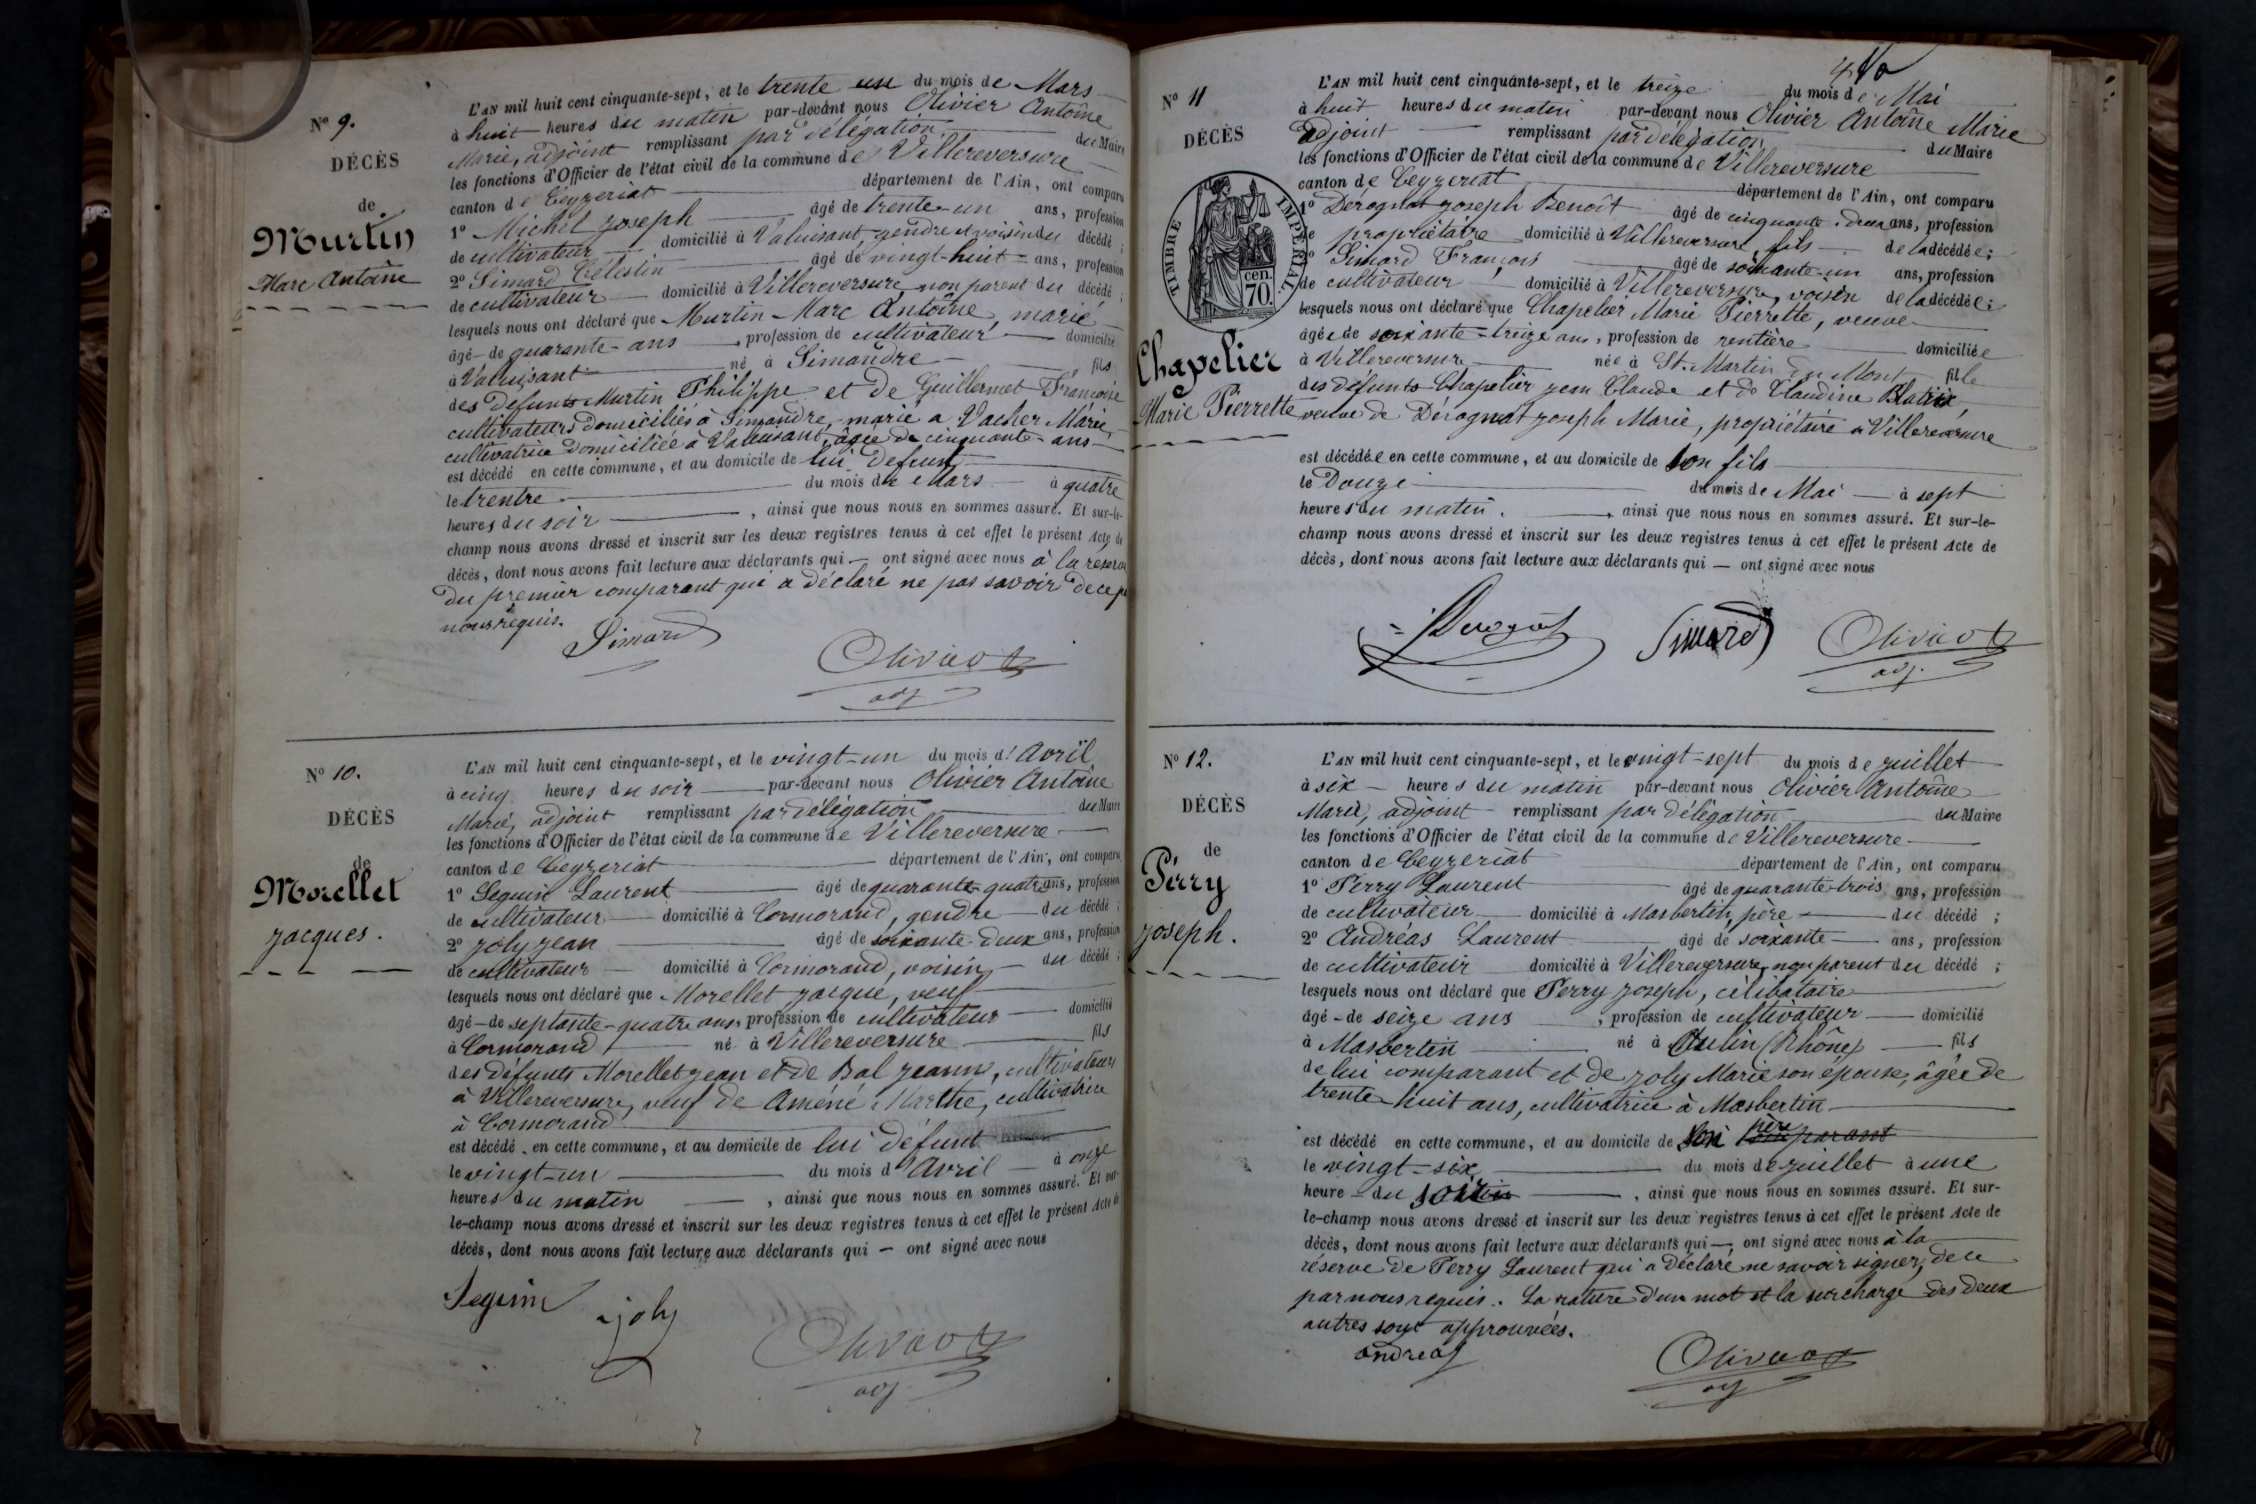 N° 9.
DÉCÈS
de
Murtin
Marc Antoine
L'AN mil huit cent cinquante-sept, et le trente un du mois de Mars
à huit heures du matin par-devant nous Olivier Antoine
Marie, adjoint remplissant par délégation du Maire
les fonctions d'Officier de l'état civil de la commune de Villereversure
canton de Ceyzeriat département de l'Ain, ont comparu
1° Michel Joseph âgé de trente-un ans, profession
de cultivateur domicilié à Valuisant, gendre et voisin du décédé;
2° Simard Célestin âgé de vingt-huit ans, profession
de cultivateur domicilié à Villereversure non parent du décédé;
lesquels nous ont déclaré que Murtin Marc Antoine, marié
âgé de quarante ans, profession de cultivateur domicilié
à Valuisant né à Simandre fils
des défunts Murtin Philippe et de Guillermet Françoise
cultivateurs domiciliés à Simandre, marié à Vacher Marie,
cultivatrice domiciliée à Valuisant, âgée de cinquante ans
est décédé en cette commune, et au domicile de lui défunt
le trentre du mois de Mars à quatre
heures du soir, ainsi que nous nous en sommes assuré. Et sur-le-
champ nous avons dressé et inscrit sur les deux registres tenus à cet effet le présent Acte de
décès, dont nous avons fait lecture aux déclarants qui — ont signé avec nous à la réserve
du premier comparant qui a déclaré ne pas savoir de ce p
nous requis.
Simard
Olivier
adj
N° 10.
DÉCÈS
de
Morellet
Jacques.
L'AN mil huit cent cinquante-sept, et le vingt-un du mois d'Avril
à cinq heures du soir par-devant nous Olivier Antoine
Marie, adjoint remplissant par délégation du Maire
les fonctions d'Officier de l'état civil de la commune de Villereversure
canton de Ceyzeriat département de l'Ain, ont comparu
1° Seguin Laurent âgé de quarante-quatre ans, profession
de cultivateur domicilié à Cormorand, gendre du décédé;
2° Joly Jean âgé de soixante-deux ans, profession
de cultivateur domicilié à Cormorand, voisin du décédé;
lesquels nous ont déclaré que Morellet Jacque, veuf
âgé de septante-quatre ans, profession de cultivateur domicilié
à Cormorand né à Villereversure fils
des défunts Morellet Jean et de Bal Jeanne, cultivateurs
à Villereversure, veuf de Améné Marthe, cultivatrice
à Cormorand
est décédé en cette commune, et au domicile de lui défunt
le vingt-un du mois d'Avril à onze
heures du matin, ainsi que nous nous en sommes assuré. Et sur-
le-champ nous avons dressé et inscrit sur les deux registres tenus à cet effet le présent Acte de
décès, dont nous avons fait lecture aux déclarants qui — ont signé avec nous
Seguin
joly
Olivier
adj
N° 11
DÉCÈS
TIMBRE IMPÉRIAL
70 cen.
Chapelier
Marie Pierrette
L'AN mil huit cent cinquante-sept, et le treize du mois de Mai
à huit heures du matin par-devant nous Olivier Antoine Marie
adjoint remplissant par délégation du Maire
les fonctions d'Officier de l'état civil de la commune de Villereversure
canton de Ceyzeriat département de l'Ain, ont comparu
1° Dérognat Joseph Benoît âgé de cinquante-deux ans, profession
de propriétaire domicilié à Villereversure, fils de la décédée;
2° Simard François âgé de soixante-un ans, profession
de cultivateur domicilié à Villereversure, voisin de la décédée;
lesquels nous ont déclaré que Chapelier Marie Pierrette, veuve
âgée de soixante-treize ans, profession de rentière domiciliée
à Villereversure née à St. Martin du Mont fille
des défunts Chapelier Jean Claude et de Claudine Blatrix,
veuve de Dérognat Joseph Marie, propriétaire à Villereversure
est décédée en cette commune, et au domicile de son fils
le Douze du mois de Mai à sept
heures du matin., ainsi que nous nous en sommes assuré. Et sur-le-
champ nous avons dressé et inscrit sur les deux registres tenus à cet effet le présent Acte de
décès, dont nous avons fait lecture aux déclarants qui — ont signé avec nous
Derognat
Simard
Olivier
adj.
N° 12.
DÉCÈS
de
Perry
Joseph.
L'AN mil huit cent cinquante-sept, et le vingt-sept du mois de Juillet
à six heures du matin par-devant nous Olivier Antoine
Marie, adjoint remplissant par délégation du Maire
les fonctions d'Officier de l'état civil de la commune de Villereversure
canton de Ceyzeriat département de l'Ain, ont comparu
1° Perry Laurent âgé de quarante-trois ans, profession
de cultivateur domicilié à Masbertin, père du décédé;
2° Andréas Laurent âgé de soixante ans, profession
de cultivateur domicilié à Villereversure, non parent du décédé;
lesquels nous ont déclaré que Perry Joseph, célibataire
âgé de seize ans, profession de cultivateur domicilié
à Masbertin né à Oulin (Rhône) fils
de lui comparant et de Joly Marie son épouse, âgée de
trente-huit ans, cultivatrice à Masbertin
est décédé en cette commune, et au domicile de son père comparant
le vingt-six du mois de Juillet à une
heure du soir, ainsi que nous nous en sommes assuré. Et sur-
le-champ nous avons dressé et inscrit sur les deux registres tenus à cet effet le présent Acte de
décès, dont nous avons fait lecture aux déclarants qui —, ont signé avec nous à la
réserve de Perry Laurent qui a déclaré ne savoir signer, de ce
par nous requis. La rature d'un mot et la surcharge des deux
autres sont approuvées.
andreas
Olivier
adj